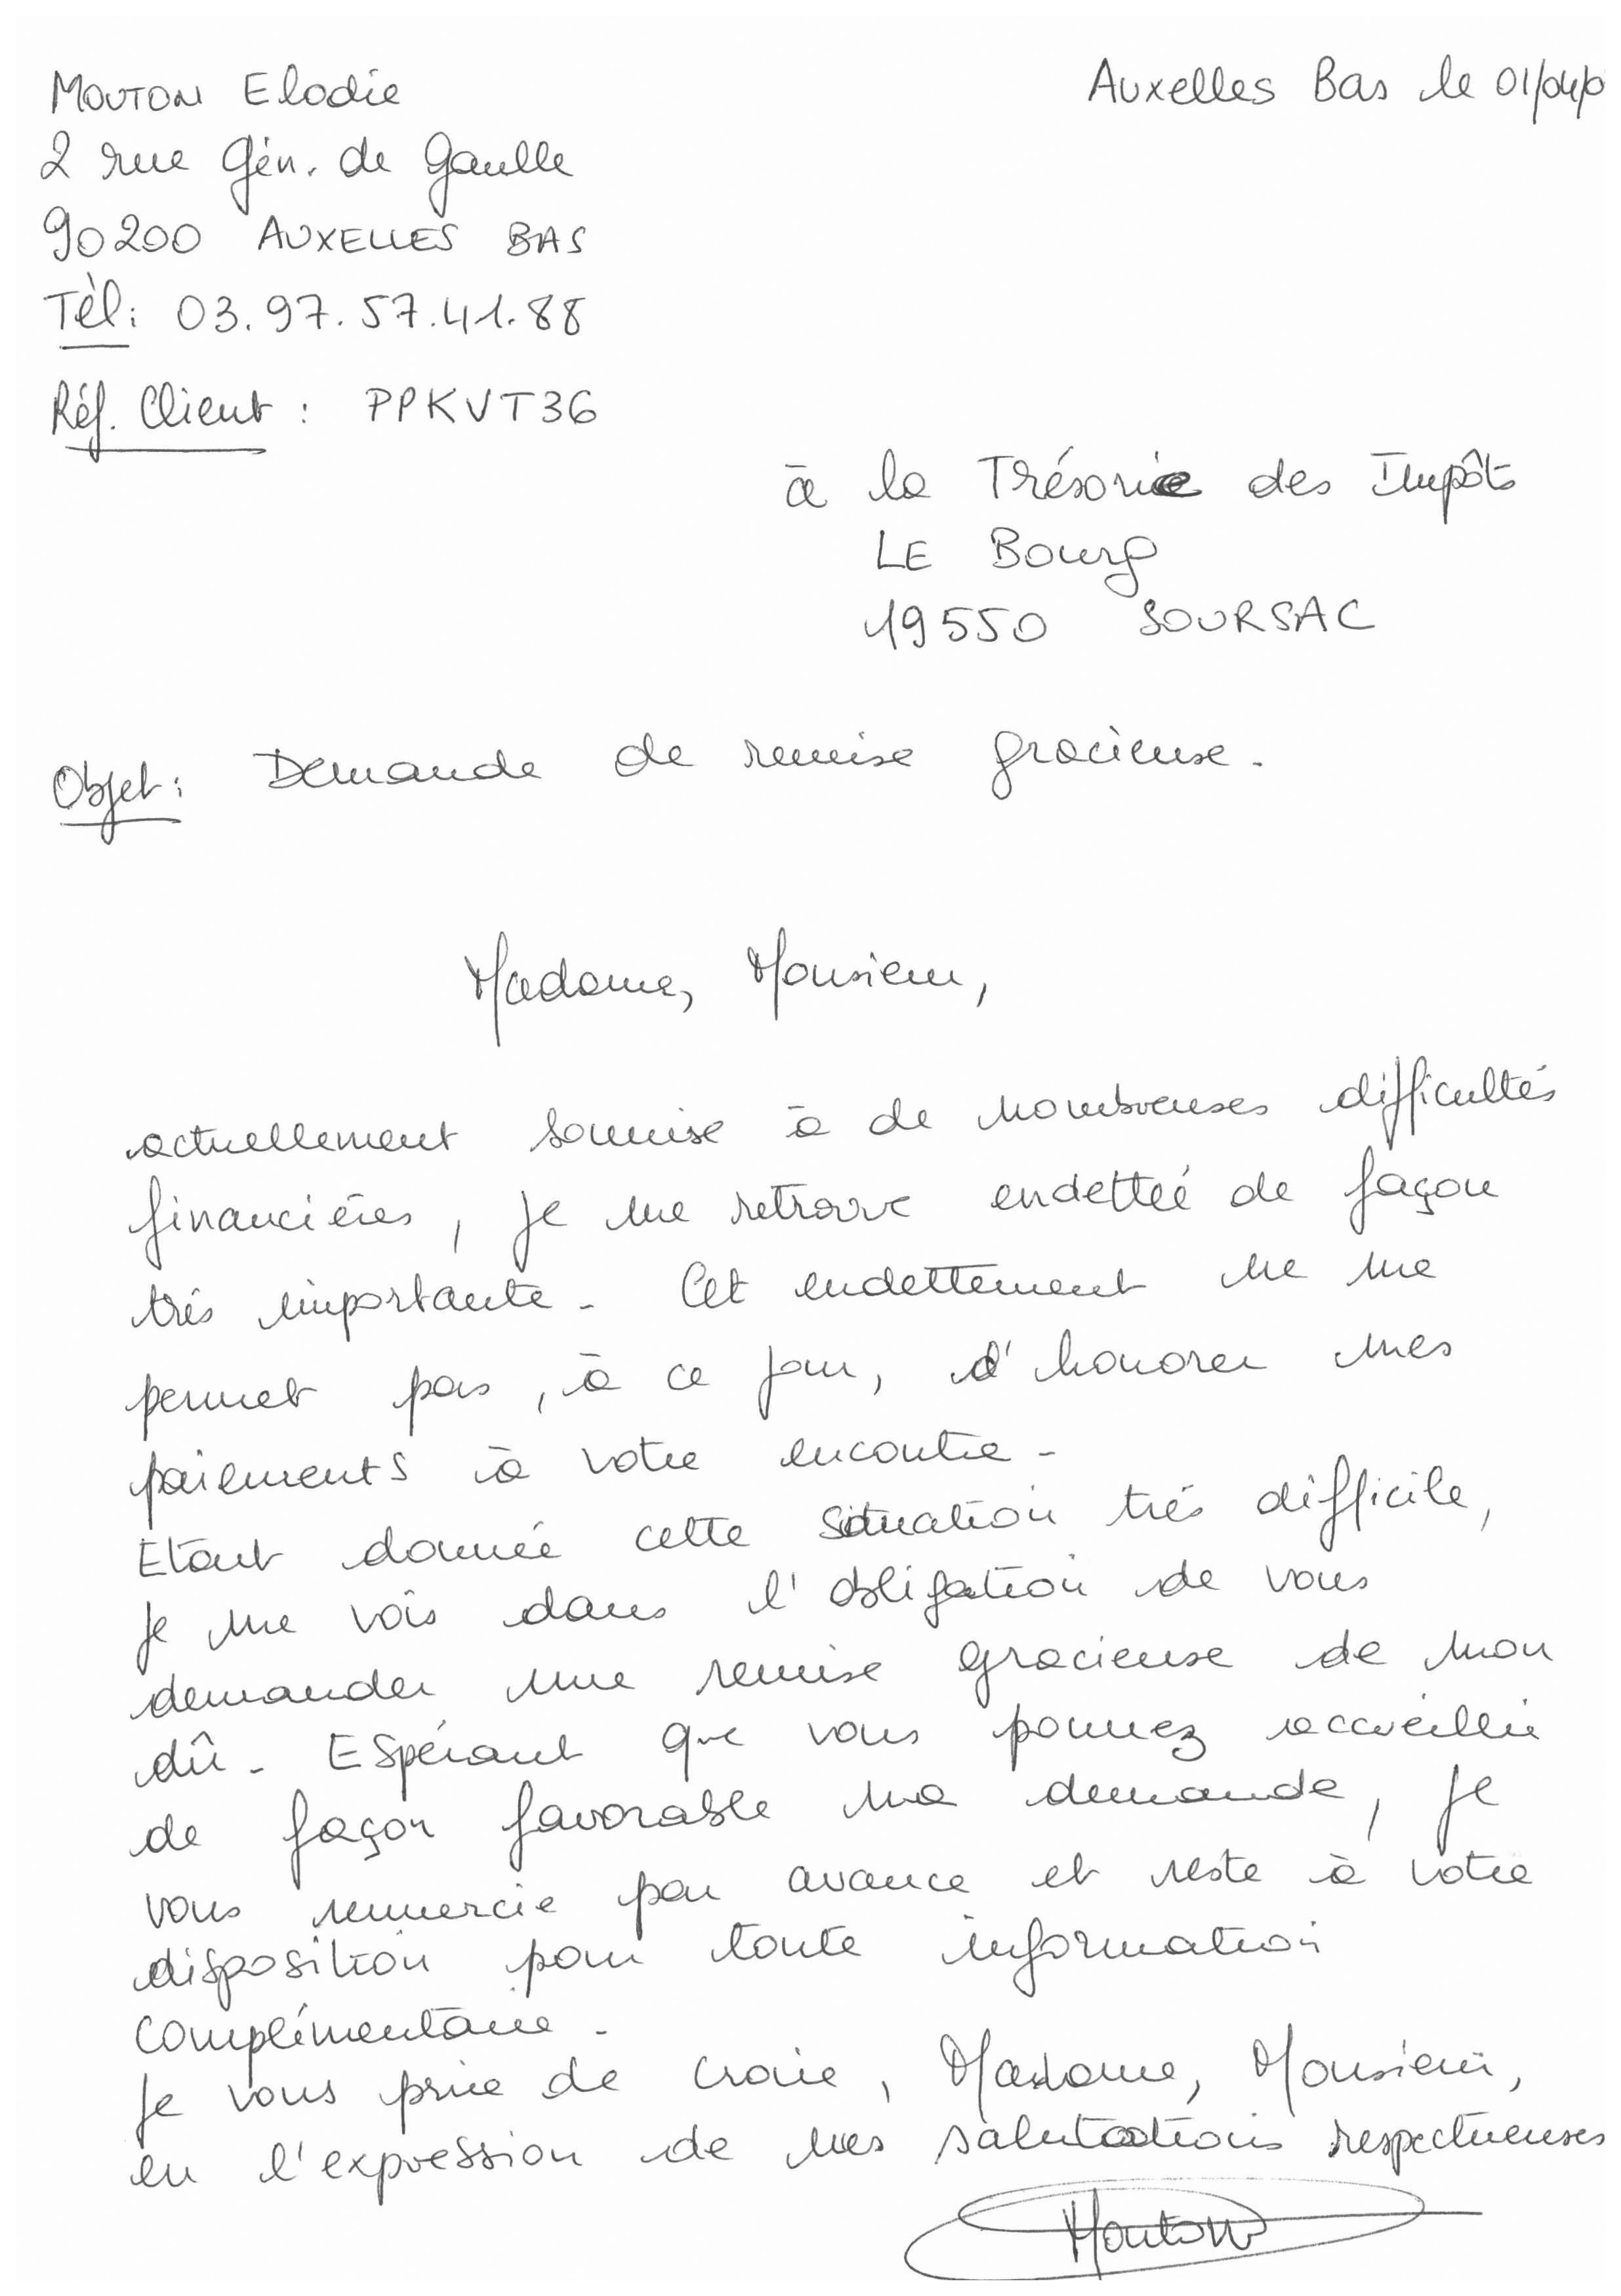 MOUTON Elodie
Auxelles Bas le 01/04/0
2 rue Gén. de Gaulle
90200 AUXELLES BAS
Tèl: 03.97.57.41.88
Réf. Client : PPKVT36
à la Trésorie des Impôts
LE Bourg
19550 SOURSAC
Objet: Demande de remise gracieuse.
Madame, Monsieur,
actuellement soumise à de nombreuses difficultés
financières, je me retrouve endettée de façon
très importante. Cet endettement ne me
permet pas, à ce jour, d'honorer mes
paiements à votre encontre.
Etant donnée cette situation très difficile,
je me vois dans l'obligation de vous
demander une remise gracieuse de mon
dû. Espérant que vous pourrez accueillir
de façon favorable ma demande, je
vous remercie par avance et reste à votre
disposition pour toute information
complémentaire.
Je vous prie de croire, Madame, Monsieur,
en l'expression de mes salutations respectueuses
Mouton